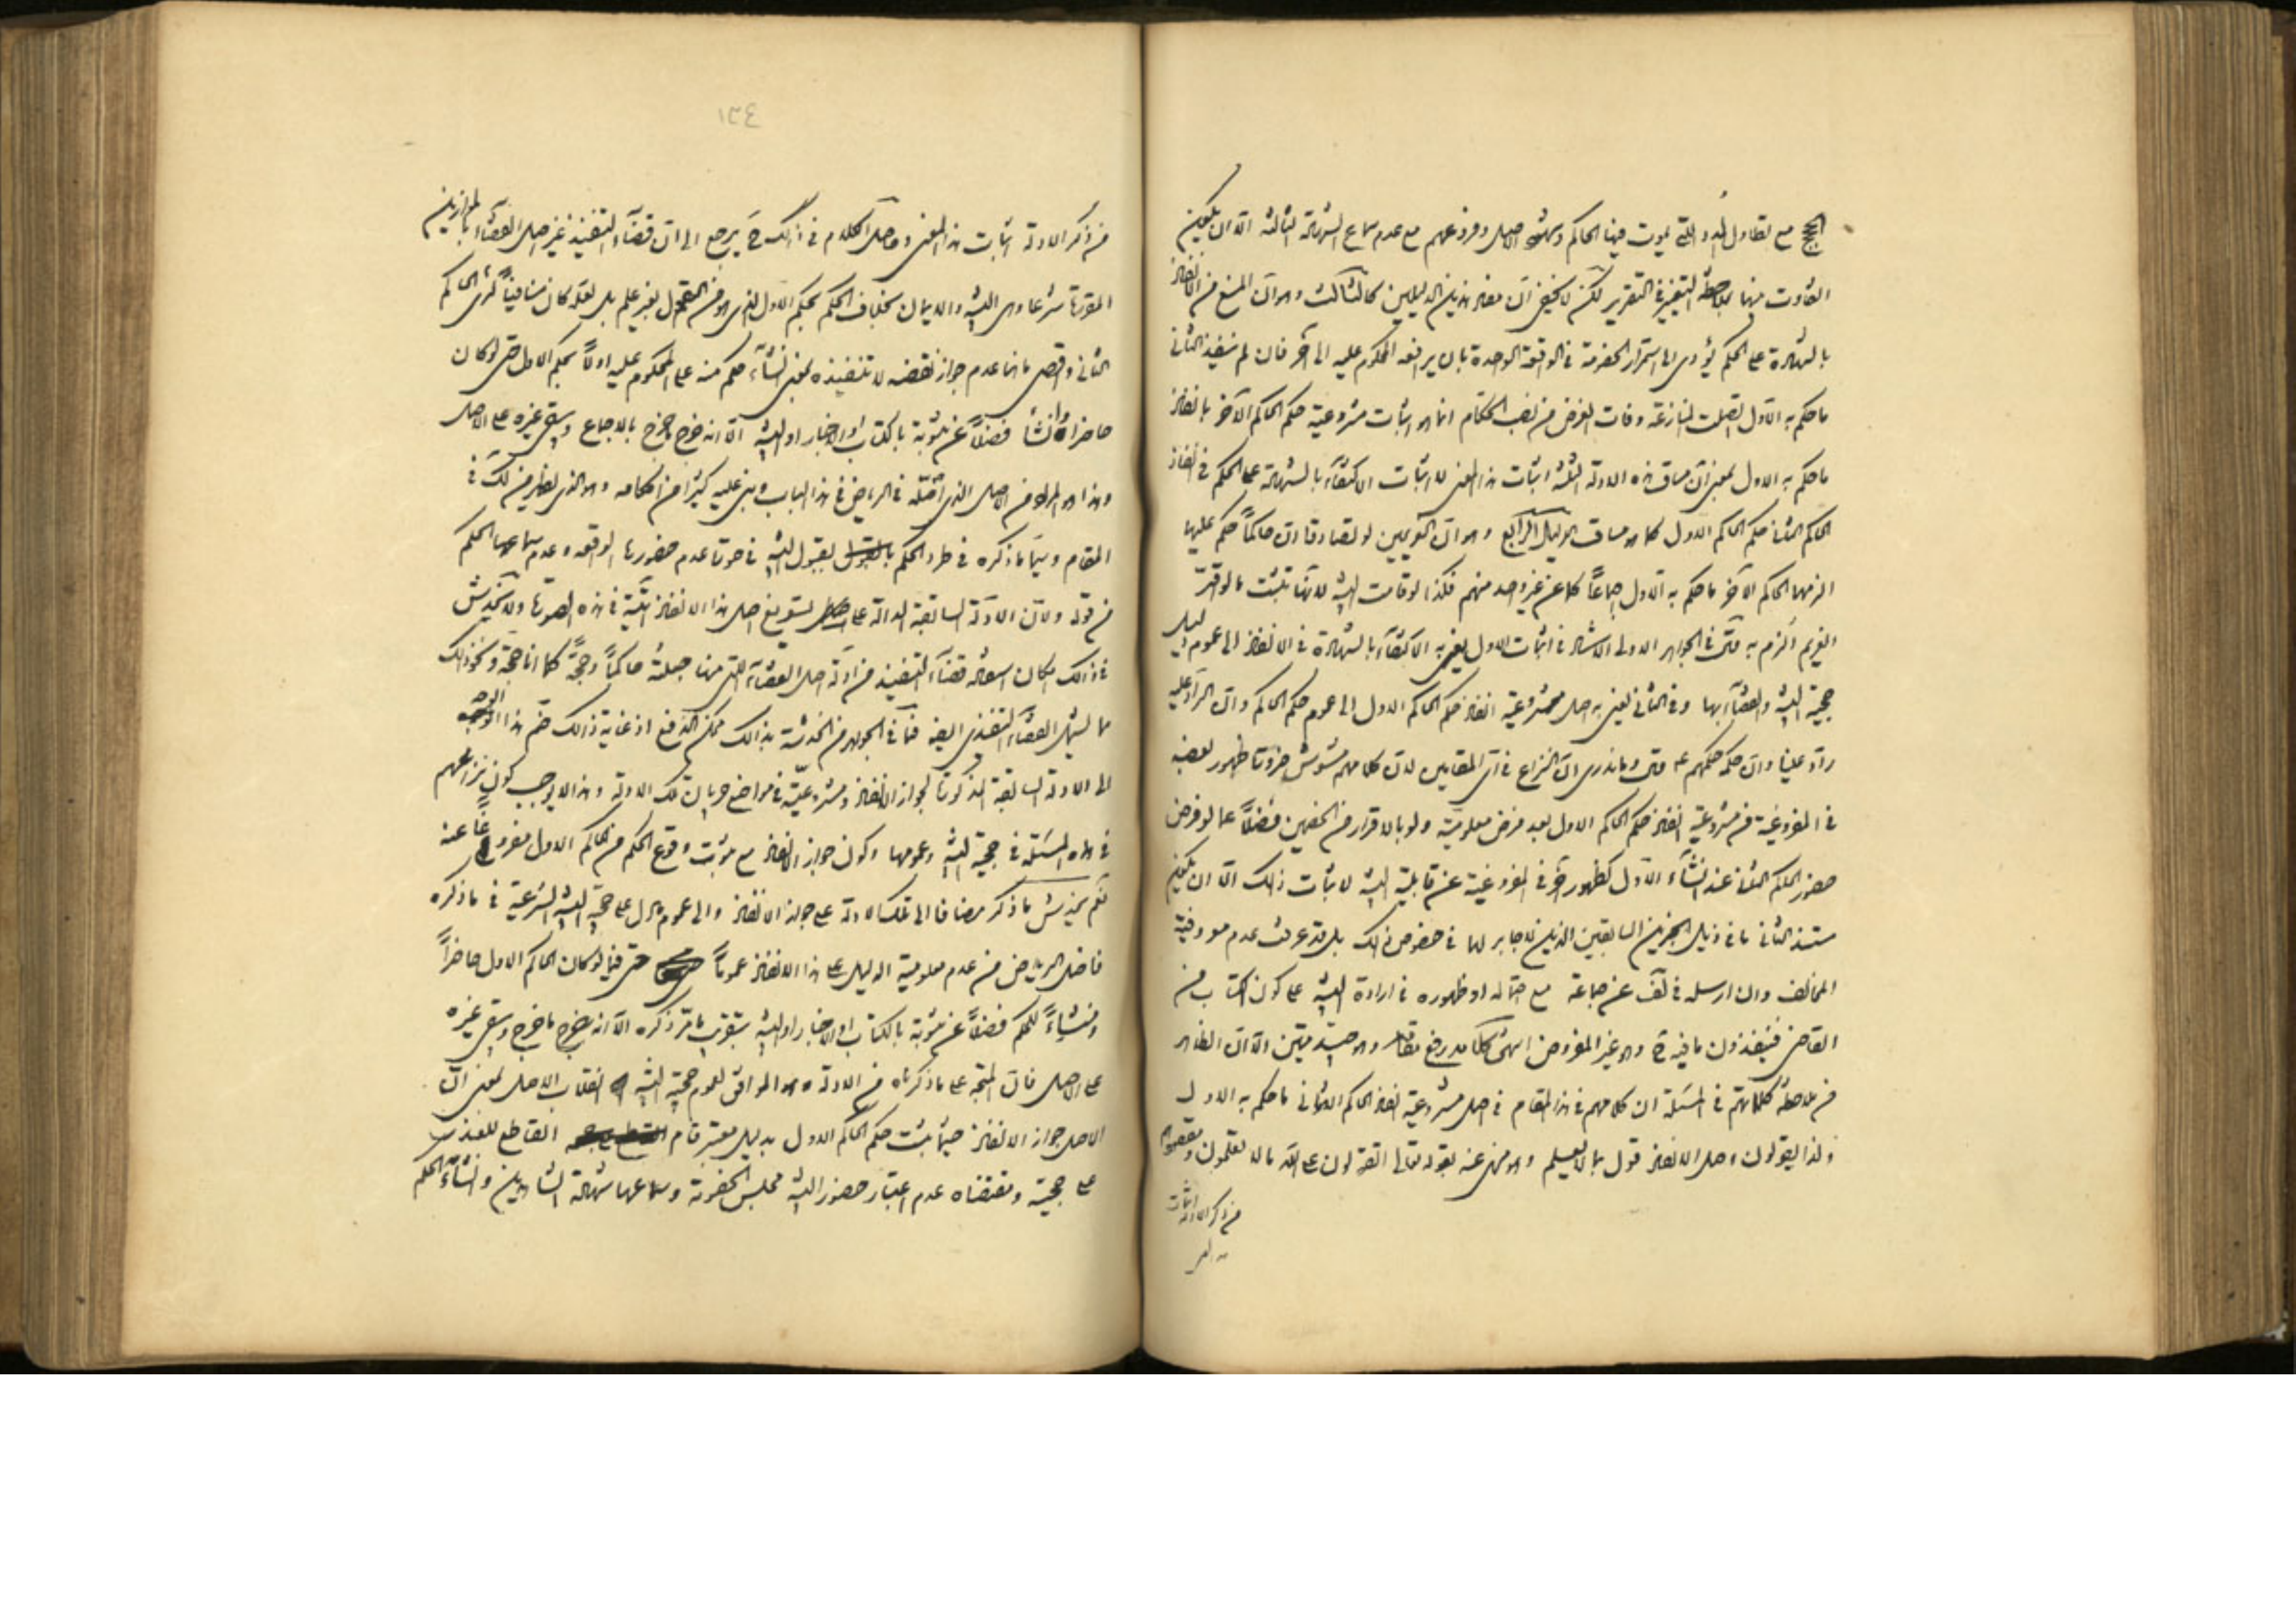 الحجج مع تطاول المدد التي يموت فيها الحاكم وشهود الاصل وفروعهم مع عدم سماع الشهادة الثالثة الا ان يكون
التفاوت بينها بملاحظة التغيير في التقرير لكن لا يخفى ان مفاد هذين الدليلين كالثالث وهو ان المنع من انفاذ
بالشهادة على الحكم يؤدى الى استمرار الخصومة في الواقعة الواحدة بان يرافعه المحكوم عليه الى آخر فان لم ينفذ الثاني
ما حكم به الاول اتصلت المنازعة وفات الغرض من نصب الحكام انما هو اثبات مشروعية حكم الحاكم الآخر بانفاذ
ما حكم به الاول بمعنى ان مساق هذه الادلة الثلثة اثبات هذا المعنى لا اثبات الاكتفاء بالشهادة على الحكم في انفاذ
الحاكم الثاني حكم الحاكم الاول كما هو مساق الدليل الرابع وهو ان الغريمين لو تصادقا ان حاكماً حكم عليهما
الزمهما الحاكم الآخر ما حكم به الاول اجماعاً كما عن غير واحد منهم فكذا لو قامت البينة لانها تثبت ما لو اقر
الغريم الزم به فتمسك في الجواهر الاولى الاستناد في اثبات الاول يعنى به الاكتفاء بالشهادة في الانفاذ الى عموم دليل
حجية البينة والقضاء بها وفي الثاني يعنى به اصل مشروعية انفاذ حكم الحاكم الاول الى عموم حكم الحاكم وان الراد عليه
راد علينا وان حكمه حكمهم وما ندرى ان النزاع في اى المقامين لان كلامهم مشوش ضرورة ظهور بعضه
في المفروغية من مشروعية انفاذ حكم الحاكم الاول بعد فرض معلوميته ولو بالاقرار من الخصمين فضلاً عما لو فرض
حضور الحاكم الثاني عند انشاء الاول كظهور آخر في المفروغية عن قابلية البينة لاثبات ذلك الا ان يكون
مستند الثاني ما في ذيل الخبرين السابقين الذين لا جابر لهما في خصوص ذلك بل قد عرفت عدم معروفية
المخالف وان ارسله في لف عن جماعة مع احتماله او ظهوره في ارادة البينة على كون الكتاب من
القاضى فينفذون ما فيه وهو غير المفروض انتهى كلامه رفع مقامه وهو جيد متين الا ان الظاهر
من ملاحظة كلماتهم في المسئلة ان كلامهم في هذا المقام في اصل مشروعية انفاذ الحاكم الثاني ما حكم به الاول
ولذا يقولون اصل الانفاذ قول بما لا يعلم وهو منهى عنه بقوله تعالى اتقولون على الله ما لا تعلمون ومقصودهم
من ذكر الادلة اثبات
هذا المعنى
١٣٤
من ذكر الادلة اثبات هذا المعنى وحاصل الكلام في ذلك يرجع الى ان قضاء التنفيذ غير اصل القضاء بالموازين
المقررة شرعا وهى البينة والايمان بخلاف الحكم بحكم الاول الذى هو من القول بغير علم بل لعله كان منافياً لرأى الحاكم
الثاني واقصى ما هنا عدم جواز نقضه لا تنفيذه بمعنى انشاء حكم منه على المحكوم عليه اولاً بحكم الاول حتى لو كان
حاضراً وانشأ فضلاً عن ثبوته بالكتاب او الاخبار او البينة الا انه خرج ما خرج بالاجماع وبقى غيره على الاصل
وهذا هو المراد من الاصل الذى اصّله في الرياض في هذا الباب وبنى عليه كثيراً من احكامه وهو الذى يظهر من لك في
المقام وسيما ما ذكره في طرد الحكم بقبول البينة في صورة عدم حضورها الواقعة وعدم سماعها الحكم
من قوله ولان الادلة السابقة الدالة على تسويغ اصل هذا الانفاذ آتية في هذه الصورة ولا يخدش
في ذلك امكان استفادة قضاء التنفيذ من ادلة اصل القضاء التي منها جعلته حاكماً وحجةً كما انا حجة ونحو ذلك
مما يشمل القضاء التنفيذى ايضا فما في الجواهر من الخدشة بذلك ممكن الدفع اذ غاية ذلك ضم هذا الوجه
الى الادلة السابقة المذكورة لجواز الانفاذ ومشروعيته في مواضع جريان تلك الادلة وهذا لا يوجب كون نزاعهم
في هذه المسئلة في حجية البينة وعمومها وكون جواز الانفاذ مع ثبوت وقوع الحكم من الحاكم الاول مفروغاً عنه
نعم يخدش ما ذكر مضافا الى تلك الادلة على جواز الانفاذ والى عموم ما دل على حجية البينة الشرعية في ما ذكره
فاضل الرياض من عدم معلومية الدليل على هذا الانفاذ عموماً حتى فيما لو كان الحاكم الاول حاضراً
ومنشئاً للحكم فضلاً عن ثبوته بالكتاب او الاخبار او البينة بتقريب ما مر ذكره الا انه خرج ما خرج وبقى غيره
على الاصل فان المتجه على ما ذكرناه من الادلة هو الموافق لعموم حجية البينة انقلاب الاصل بمعنى ان
الاصل جواز الانفاذ حيثما يثبت حكم الحاكم الاول بدليل معتبر قام القاطع للعذر
على حجيته ومقتضاه عدم اعتبار حضور البينة مجلس الخصومة وسماعها شهادة الشاهدين وانشاء الحكم